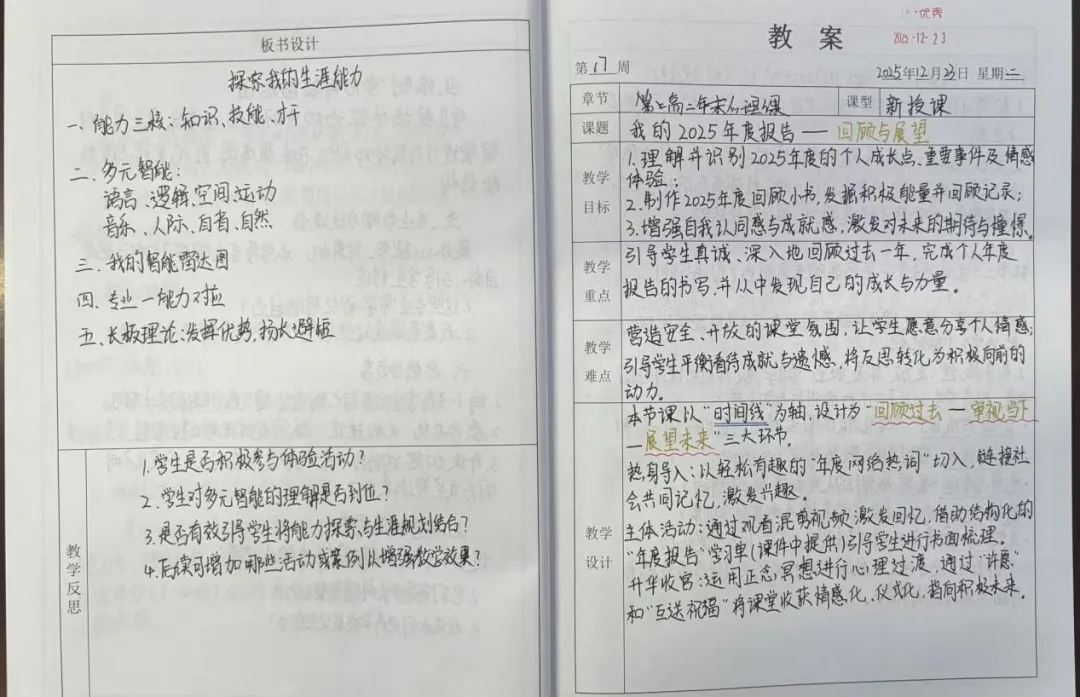 板书设计
探索我的生涯能力
一、能力三核:知识、技能、才干
二、多元智能:
语言、逻辑、空间、运动
音乐、人际、自省、自然
三、我的智能雷达图
四、专业—能力对应
五、长板理论:发挥优势,扬长避短
教学反思
1.学生是否积极参与体验活动?
2.学生对多元智能的理解是否到位?
3.是否有效引导学生将能力探索与生涯规划结合?
4.后续可增加哪些活动或案例以增强教学效果?
优秀
2025-12-23
教案
第17周
2025年12月23日 星期二
章节
高二年末心理课
课型
新授课
课题
我的2025年度报告——回顾与展望
教学
目标
1.理解并识别2025年度的个人成长点,重要事件及情感
体验;
2.制作2025年度回顾小书,发掘积极能量并回顾记录;
3.增强自我认同感与成就感,激发对未来的期待与憧憬。
教学
重点
引导学生真诚、深入地回顾过去一年,完成个人年度
报告的书写,并从中发现自己的成长与力量。
教学
难点
营造安全、开放的课堂氛围,让学生愿意分享个人情感;
引导学生平衡看待成就与遗憾,将反思转化为积极向前的
动力。
教学
设计
本节课以"时间线"为轴,设计为"回顾过去—审视当下
—展望未来"三大环节。
热身导入:以轻松有趣的"年度网络热词"切入,链接社
会共同记忆,激发兴趣。
主体活动:通过观看混剪视频激发回忆,借助结构化的
"年度报告"学习单(课件中提供)引导学生进行书面梳理。
升华收官:运用正念冥想进行心理过渡,通过"许愿"
和"互送祝福"将课堂收获情感化、仪式化,指向积极未来。